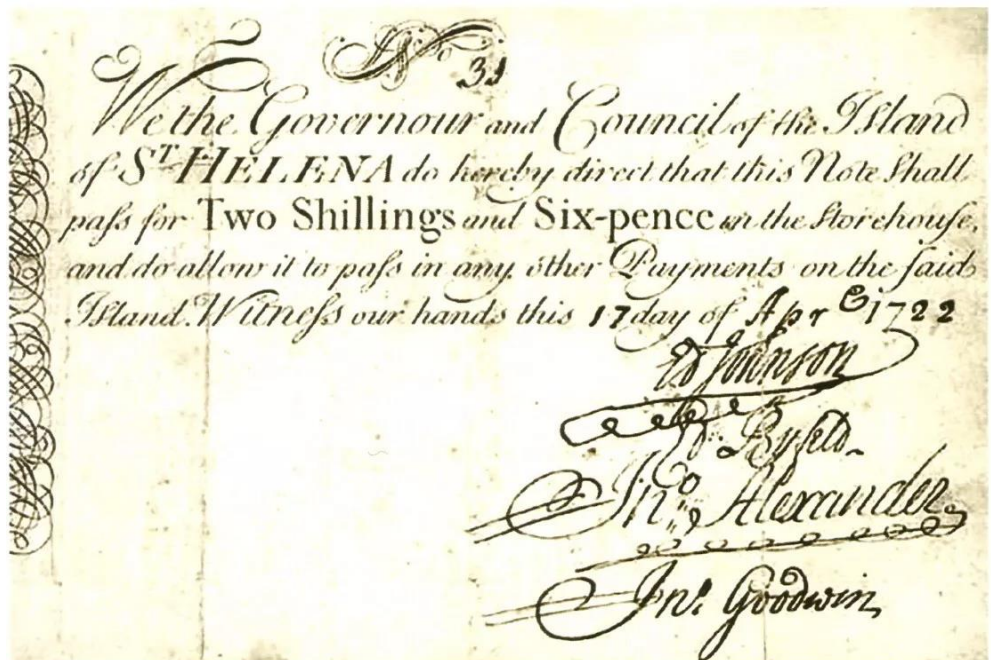 No 31
We the Governour and Council of the Island
of ST. HELENA do hereby direct that this Note Shall
paſs for Two Shillings and Six-pence in the Storehouſe,
and do allow it to paſs in any other Payments on the ſaid
Island. Witneſs our hands this 17 day of Apr 1722
Ed Johnson
Byfeld
Jno. Alexander
Jno. Goodwin